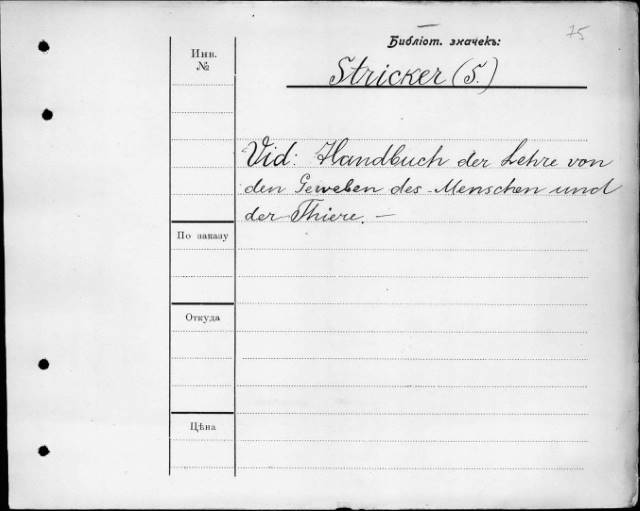 75
Библіот. значекъ:
Инв.
№
Stricker (S.)
Vid: Handbuch der Lehre von
den Geweben des Menschen und
der Thiere. —
По заказу
Откуда
Цѣна